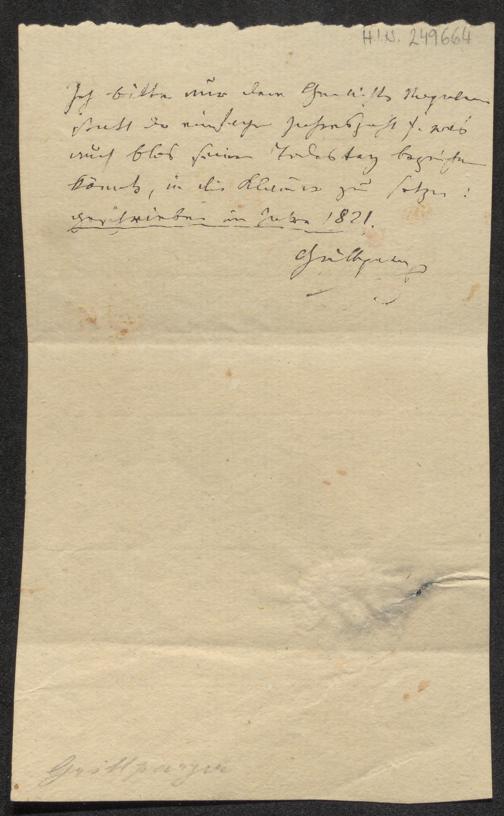 H.I.N. 249664
Ich bitte nur dem Gedichte Napoleon
statt der einfachen Jahreszahl, was
auch blos seinen Todestag bezeichnen
könnte, in die Klamer zu setzen:
geschrieben im Jahre 1821.
Grillparzer
Grillparzer